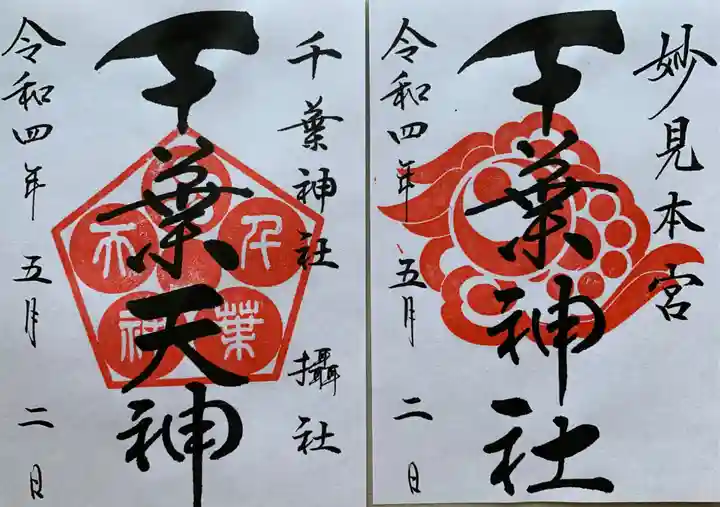 妙見本宮
千葉神社
令和四年五月二日
千葉神社 攝社
千葉天神
令和四年五月二日
千葉
神社